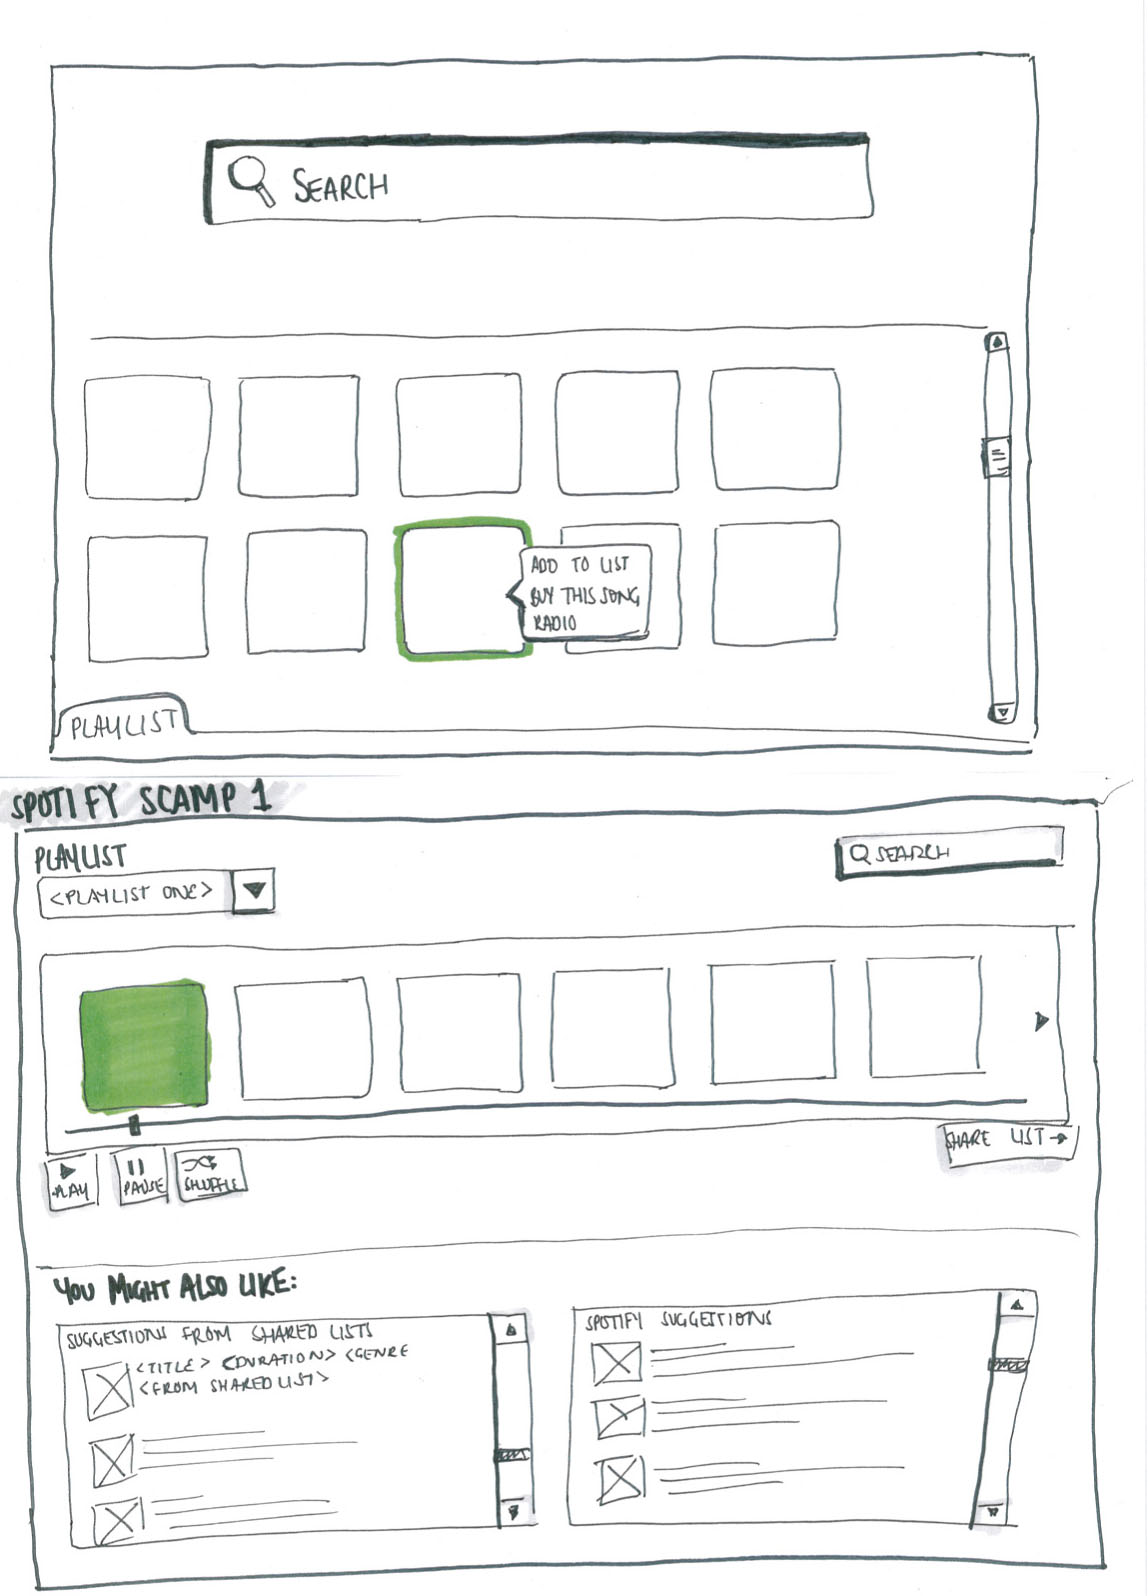 SEARCH
ADD TO LIST
BUY THIS SONG
RADIO
PLAYLIST
SPOTIFY SCAMP 1
PLAYLIST
<PLAYLIST ONE>
SEARCH
SHARE LIST→
PLAY
PAUSE
SHUFFLE
YOU MIGHT ALSO LIKE:
SUGGESTIONS FROM SHARED LISTS
<TITLE> <DURATION> <GENRE
<FROM SHARED LIST>
SPOTIFY SUGGESTIONS